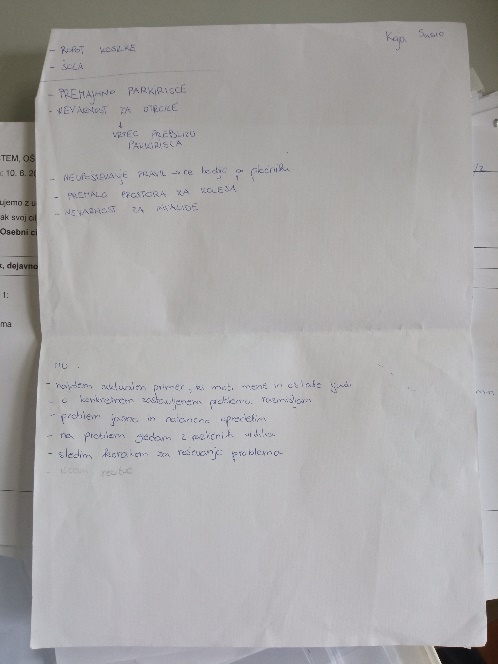 - ROBOT KOSILKE
- ŠOLA
- PREMAJHNO PARKIRIŠČE
- NEVARNOST ZA OTROKE
↓
VRTEC PREBLIZU
PARKIRIŠČA
- NEUPOŠTEVANJE PRAVIL → ne hodijo po pločniku
- PREMALO PROSTORA ZA KOLESA
- NEVARNOST ZA INVALIDE
- najdem aktualen primer, ki moti mene in ostale ljudi
- o konkretnem zastavljenem problemu razmišljam
- problem jasno in natančno opredelim
- na problem gledam z različnih
- sledim korakom za reševanje problema
TEM, OŠ
: 10. 6. 20
ujemo z u
ak svoj cilj
Osebni ci
, dejavno
t:
ma